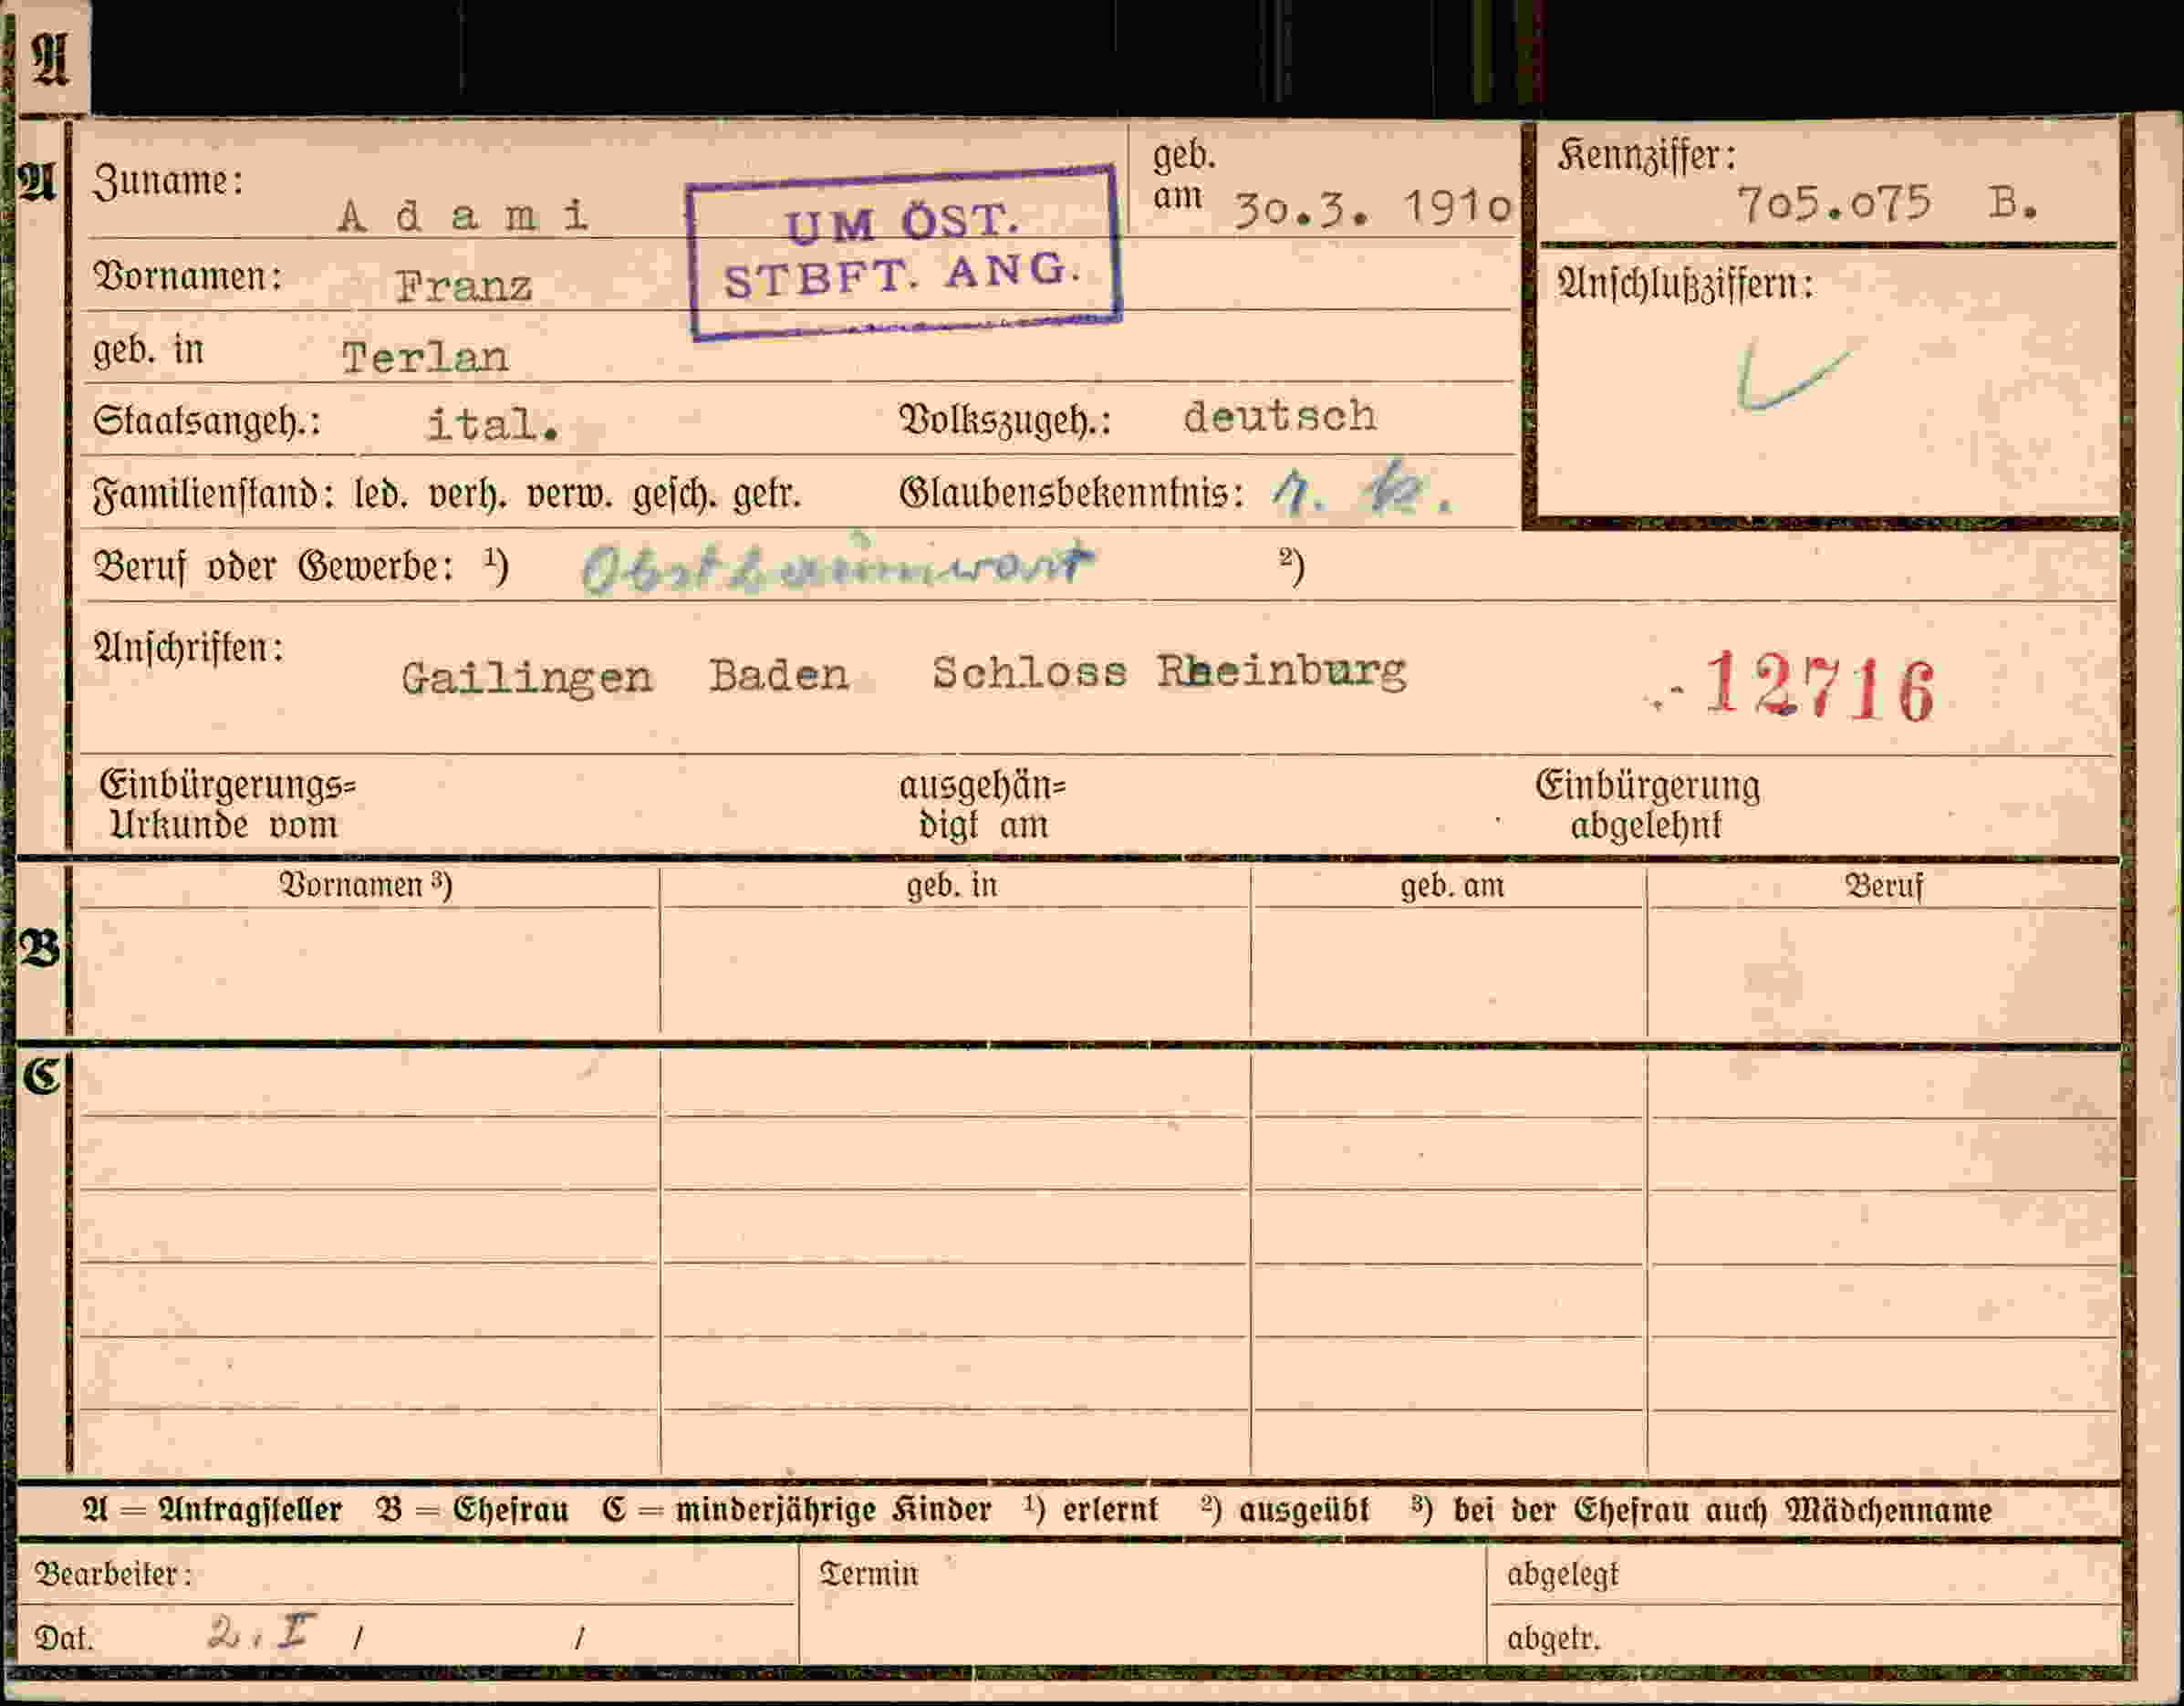 A
A
Zuname: Adami
geb. am 30.3. 1910
Kennziffer: 705.075 B.
UM ÖST.
STBFT. ANG.
Vornamen: Franz
Anschlußziffern:
geb. in Terlan
Staatsangeh.: ital. Volkszugeh.: deutsch
Familienstand: led. verh. verw. gesch. getr. Glaubensbekenntnis: r. k.
Beruf oder Gewerbe: ¹) Obstbaumwart ²)
Anschriften: Gailingen Baden Schloss Rheinburg
12716
Einbürgerungs=
Urkunde vom
ausgehän=
digt am
Einbürgerung
abgelehnt
B
Vornamen ³) geb. in geb. am Beruf
C
A = Antragsteller B = Ehefrau C = minderjährige Kinder ¹) erlernt ²) ausgeübt ³) bei der Ehefrau auch Mädchenname
Bearbeiter: Termin abgelegt
Dat. 2. I / / abgetr.